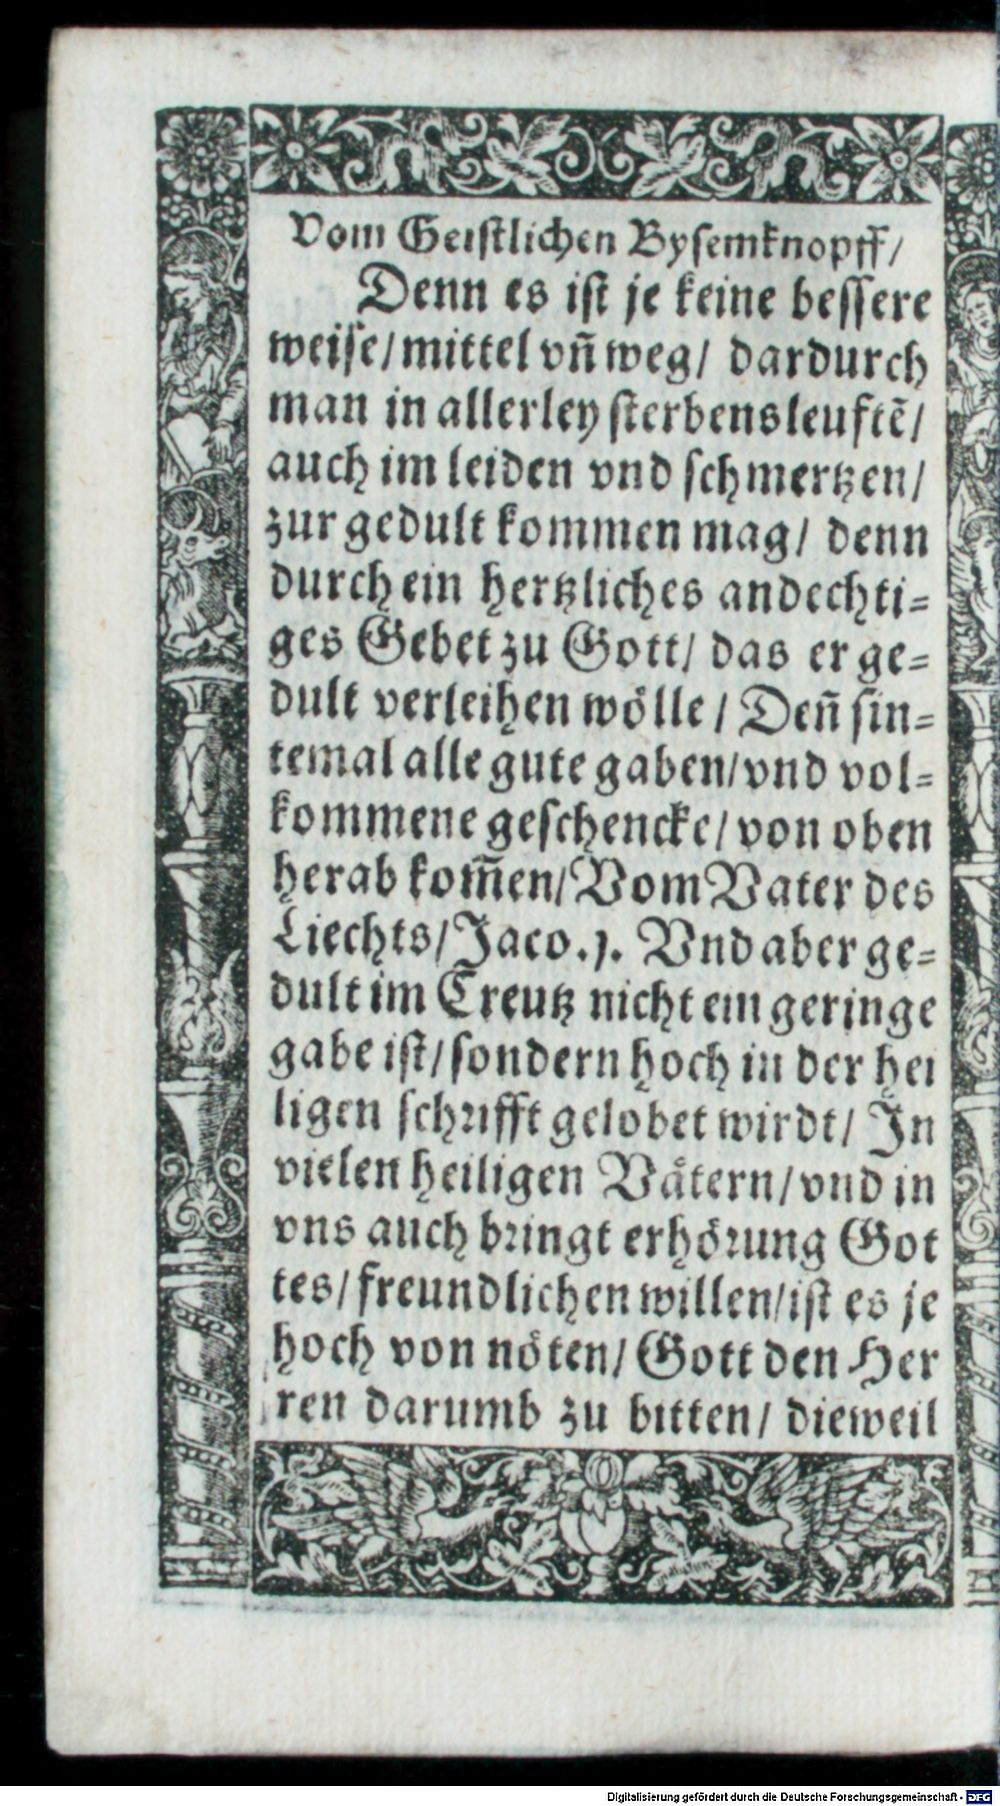 Vom Geistlichen Bysemknopff/
Denn es ist je keine bessere
weise/mittel vñ weg/ dardurch
man in allerley sterbensleuftẽ/
auch im leiden vnd schmertzen/
zur gedult kommen mag/ denn
durch ein hertzliches andechti=
ges Gebet zu Gott/ das er ge=
dult verleihen wölle/ Deñ sin=
temal alle gute gaben/vnd vol=
kommene geschencke/ von oben
herab kom̃en/Vom Vater des
Liechts/Jaco.1. Vnd aber ge=
dult im Creutz nicht ein geringe
gabe ist/sondern hoch in der hei
ligen schrifft gelobet wirdt/ In
vielen heiligen Vätern/vnd in
vns auch bringt erhörung Got
tes/freundlichen willen/ist es je
hoch von nöten/ Gott den Her
ren darumb zu bitten/ dieweil
Digitalisierung gefördert durch die Deutsche Forschungsgemeinschaft - DFG